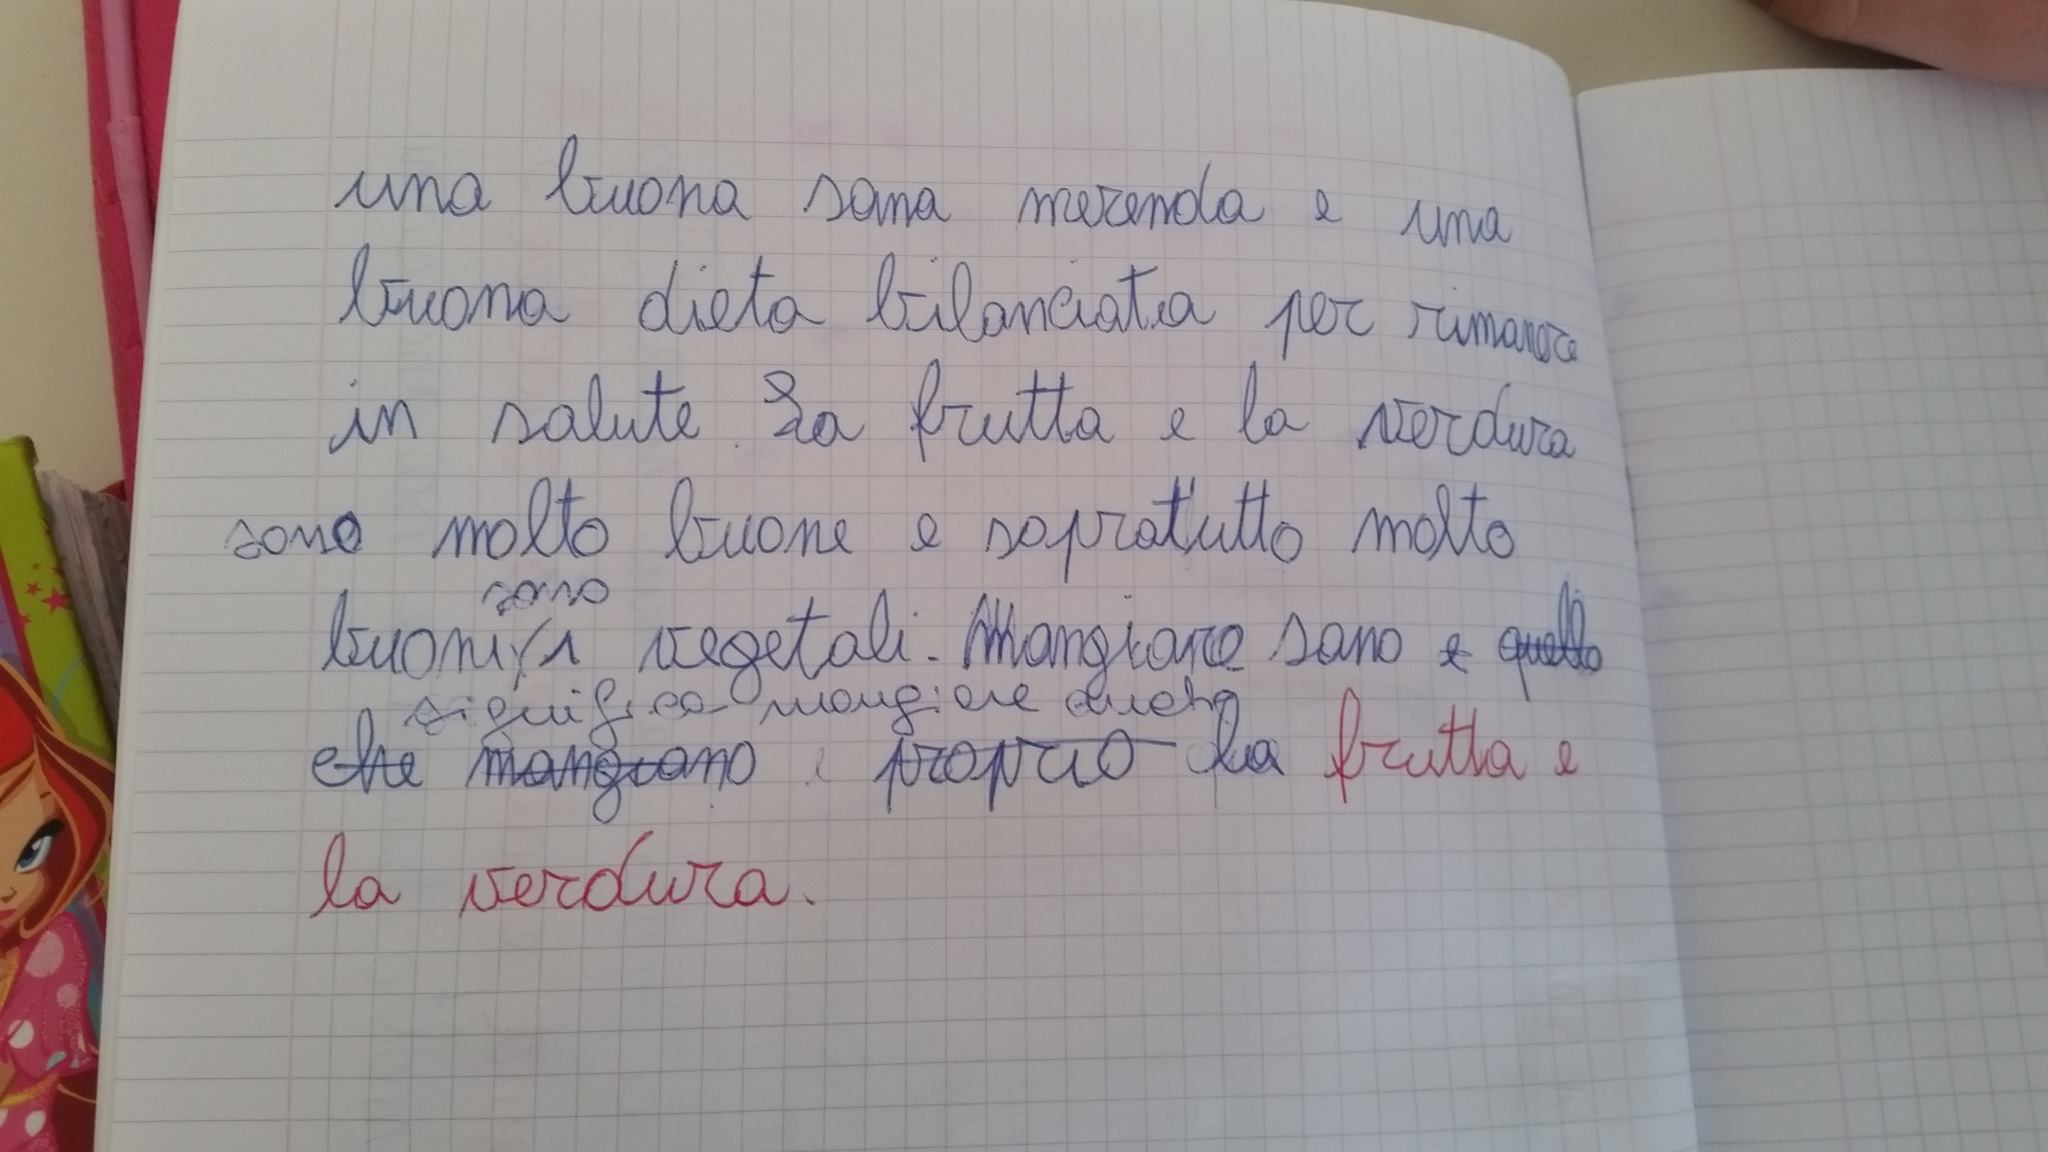 una buona sana merenda e una
buona dieta bilanciata per rimanere
in salute. La frutta e la verdura
sono molto buone e sopratutto molto
sono
buoni i vegetali. Mangiare sano e quello
significa mangiare anche
che mangiano e proprio la frutta e
la verdura.